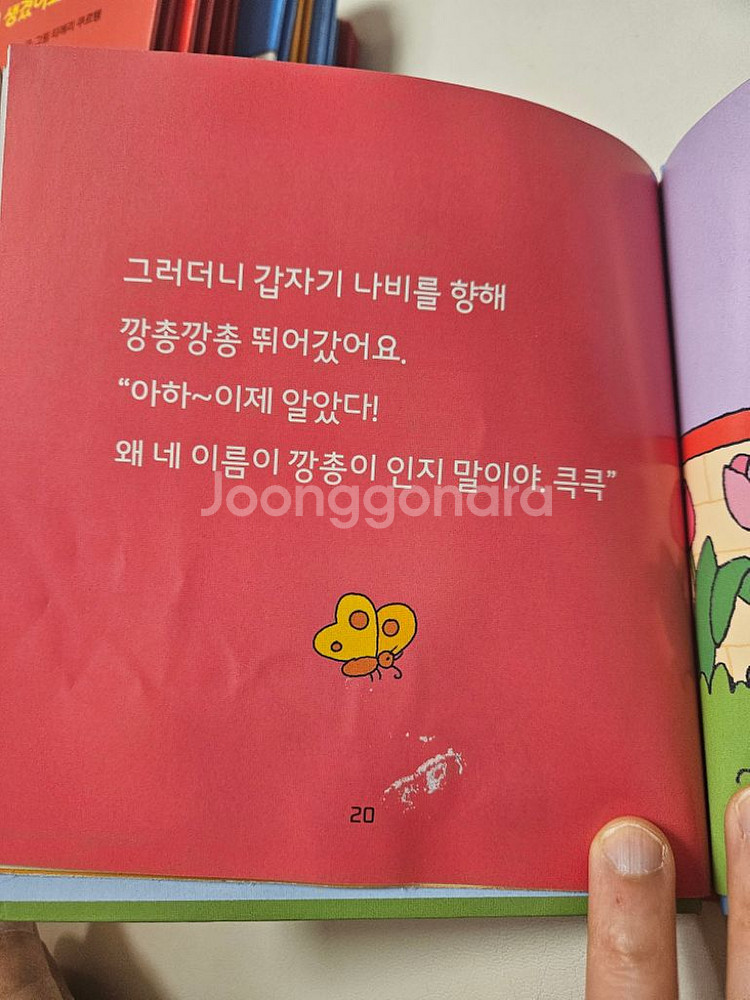 그러더니 갑자기 나비를 향해
깡총깡총 뛰어갔어요.
“아하~이제 알았다!
왜 네 이름이 깡총이 인지 말이야. 큭큭”
Joonggonara
20